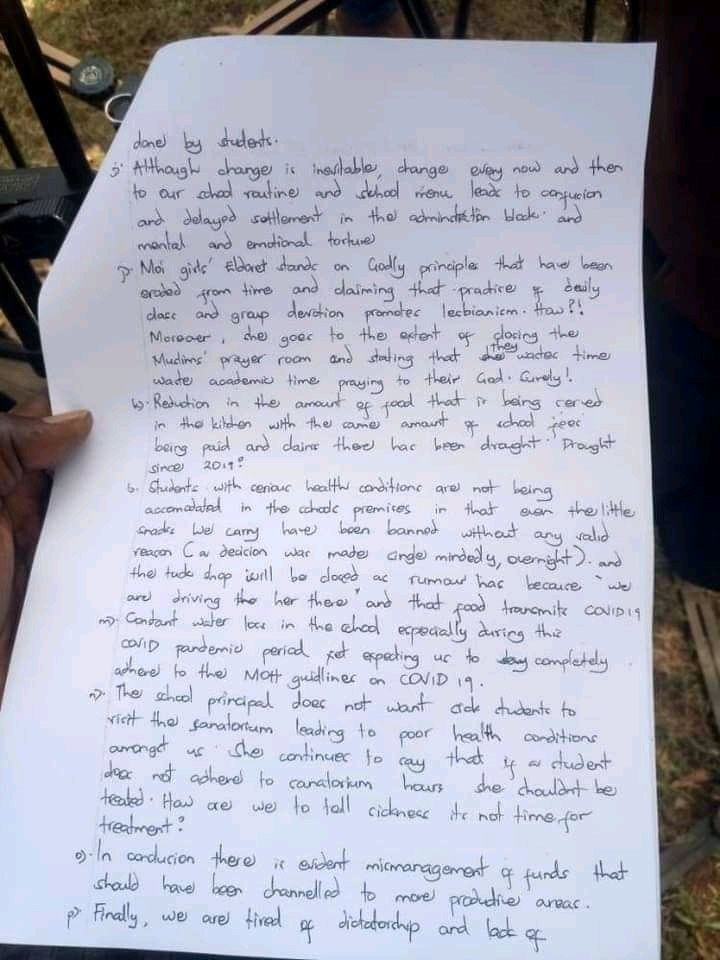 done by students.
i. Although change is inevitable, change every now and then
to our school routine and school menu leads to confusion
and delayed settlement in the adminstration block. and
mental and emotional torture
j. Moi girls' Eldoret stands on Godly principles that have been
eroded from time and claiming that practice of daily
class and group devotion promotes lesbianism. How?!
Moreover, she goes to the extent of closing the
Muslims' prayer room and stating that they wastes time
waste academic time praying to their God. Surely!
k). Reduction in the amount of food that is being served
in the kitchen with the same amount of school fees
being paid and claims there has been draught. Draught
since 2019?
l. Students with serious health conditions are not being
accomodated in the schools premises in that even the little
snacks we carry have been banned without any valid
reason (a decision was made single mindedly, overnight). and
the tuck shop will be closed as rumour has because "we
are driving the her there" and that food transmits COVID19
m). Constant water loss in the school especially during this
COVID pandemic period yet expecting us to completely
adhere to the MOH guidlines on COVID 19.
n). The school principal does not want sick students to
visit the sanatorium leading to poor health conditions
amongst us. She continues to say that if a student
does not adhere to sanatorium hours she shouldnt be
treated. How are we to tell sickness its not time for
treatment?
o). In conclusion there is evident mismanagement of funds that
should have been channelled to more productive areas.
p). Finally, we are tired of dictatorship and lack of